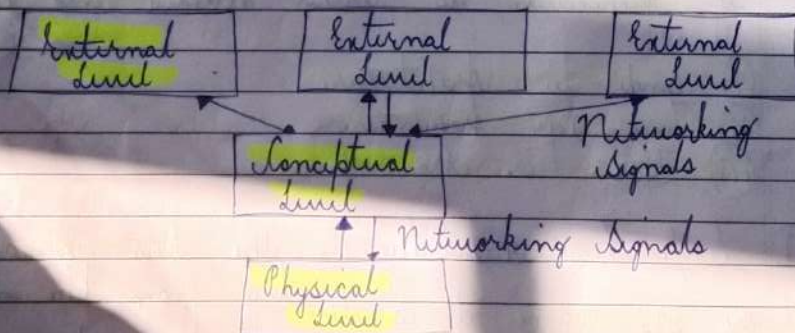 External External External
Level Level Level
Networking
Signals
Conceptual
Level
Networking Signals
Physical
Level